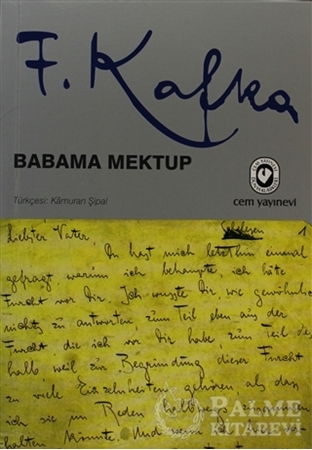 F. Kafka
BABAMA MEKTUP
Türkçesi: Kâmuran Şipal
cem yayınevi
Schelesen 1
Liebster Vater,
Du hast mich letzthin einmal
gefragt, warum ich behaupte, ich hätte
Furcht vor Dir. Ich wusste Dir, wie gewöhnlich,
nichts zu antworten, zum Teil eben aus der
Furcht die ich vor Dir habe, zum Teil des-
halb weil zur Begründung dieser Furcht
zu viele Einzelnheiten gehören als dass
ich sie im Reden halbwegs zusammen
halten könnte. Und wenn ich
PALME
KİTABEVİ